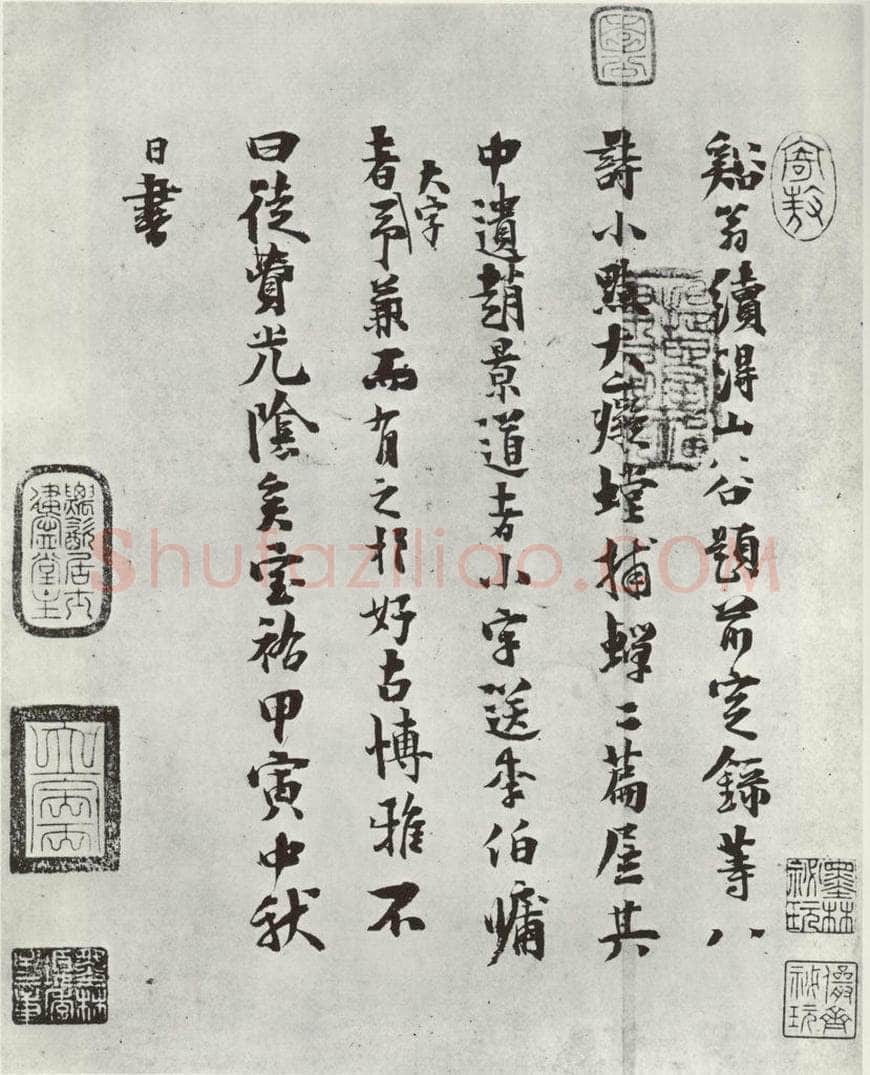 谿翁續得山谷題前定錄等八
詩小黠大癡螳捕蟬二篇屋其
中遺趙景道者小字送李伯牖
者大字予兼而有之於好古博雅不
曰徒費光陰矣宝祐甲寅中秋
日書
Shufaziliao.COM
墨林
祕玩